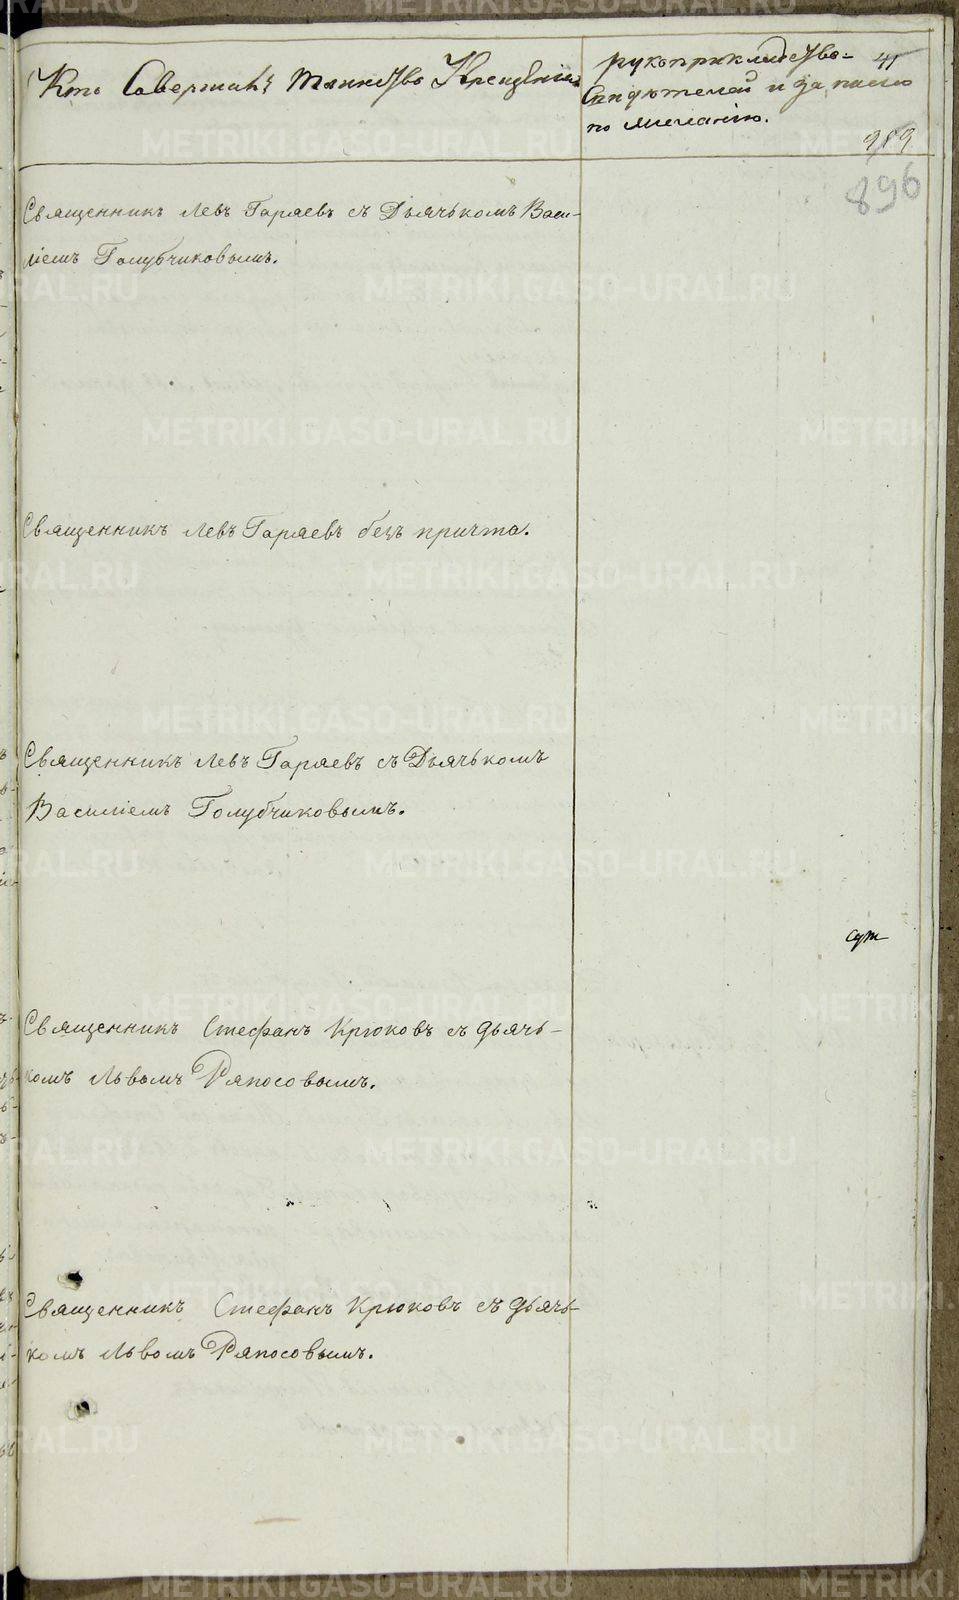 Кто Совершилъ Таинство Крещенія
рукоприкладство
Свидѣтелей и запись
по желанію.
41
989
896
Священникъ Левъ Гаряевъ съ Дьячькомъ Васи-
ліемъ Голубчиковымъ.
Священникъ Левъ Гаряевъ безъ причта.
Священникъ Левъ Гаряевъ съ Дьячькомъ
Василіемъ Голубчиковымъ.
Священникъ Стефанъ Крюковъ съ дьячь-
комъ Львомъ Ряпосовымъ.
Священникъ Стефанъ Крюковъ съ дьячь-
комъ Львомъ Ряпосовымъ.
METRIKI.GASO-URAL.RU